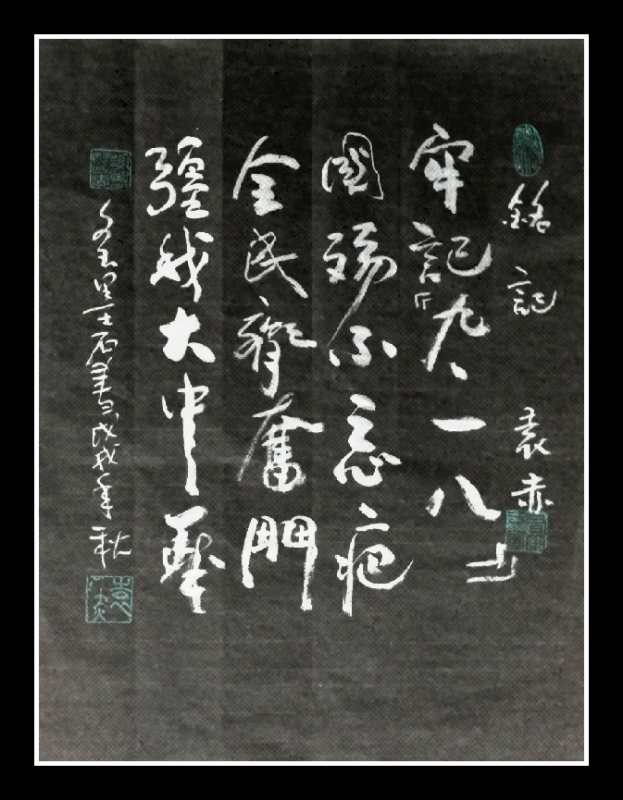 銘記 袁赤
牢記『九、一八』
國殤不忘疤
全民齊奮鬥
彊我大中華
戊戌年秋